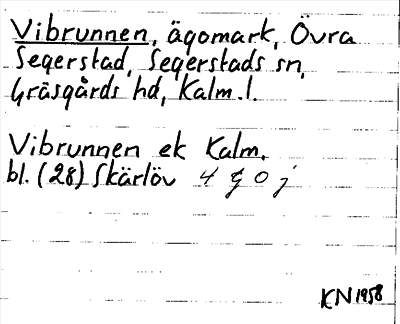 Vibrunnen, ägomark, Övra
Segerstad, Segerstads sn,
Gräsgårds hd, Kalm.l.
Vibrunnen ek Kalm.
bl. (28) Skärlöv 4 g 0 j
KN 1958